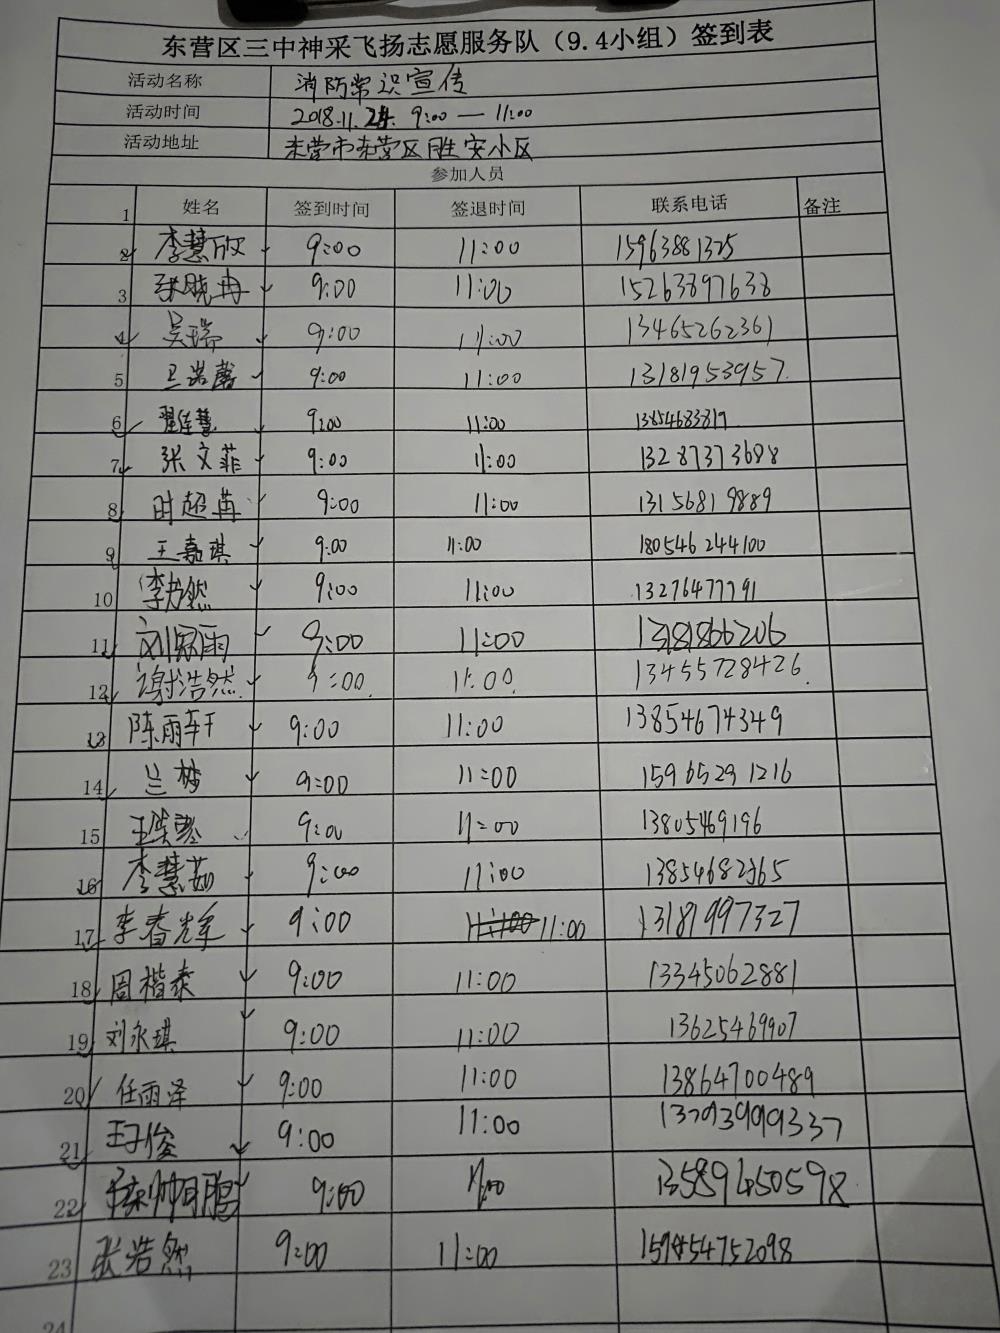 东营区三中神采飞扬志愿服务队（9.4小组）签到表
活动名称 消防常识宣传
活动时间 2018.11.24. 9:00 — 11:00
活动地址 东营市东营区胜安小区
参加人员
1 姓名 签到时间 签退时间 联系电话 备注
2 李慧欣 9:00 11:00 15963881325
3 张晓冉 9:00 11:00 15263897638
4 吴瑞 9:00 11:00 13465262361
5 卫诺馨 9:00 11:00 13181953957.
6 翟佳慧 9:00 11:00 13854683819
7 张文菲 9:00 11:00 13287373698
8 时超苒 9:00 11:00 13156819889
9 王嘉琪 9:00 11:00 180546244100
10 李均然 9:00 11:00 13276477791
11 刘冠雨 9:00 11:00 13181866206
12 谢浩然 9:00. 11:00. 13455728426.
13 陈雨轩 9:00 11:00 13854674349
14 兰梦 9:00 11:00 15965291216
15 9:00 11:00 13805469196
16 李慧茹 9:00 11:00
17 李春光 9:00 11:00 13181997327
18 周楷泰 9:00 11:00 13345062881
19 刘永琪 9:00 11:00 13625469907
20 任雨泽 9:00 11:00 13864700489
21 王子俊 9:00 11:00 13793999337
22 9:00 11:00 13589450598
23 张浩然 9:00 11:00
24